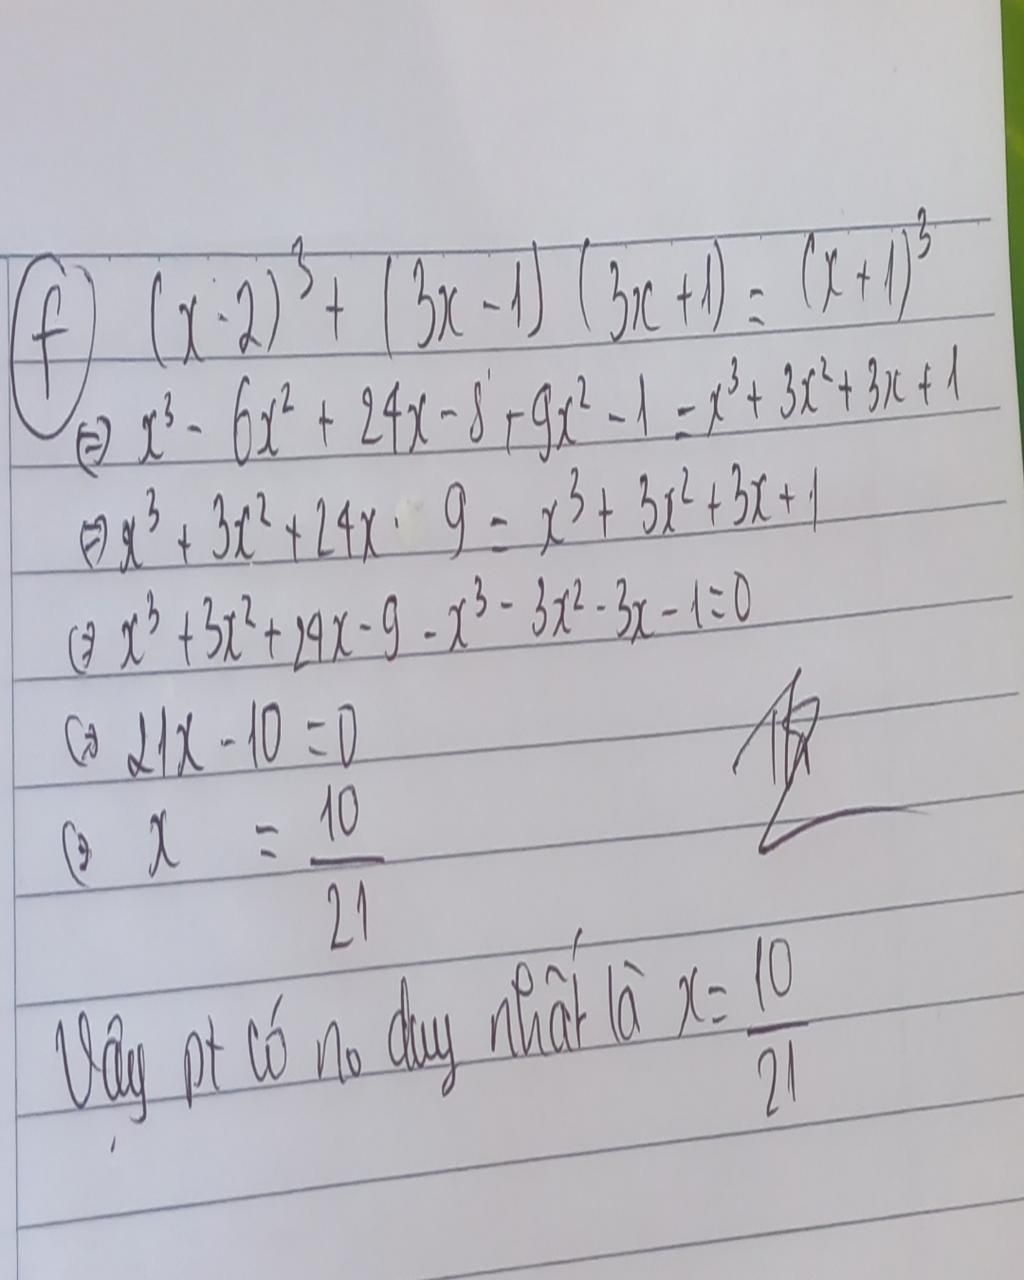 f (x-2)³ + (3x-1)(3x+1) = (x+1)³
⇔ x³ - 6x² + 24x - 8 + 9x² - 1 = x³ + 3x² + 3x + 1
⇔ x³ + 3x² + 24x - 9 = x³ + 3x² + 3x + 1
⇔ x³ + 3x² + 24x - 9 - x³ - 3x² - 3x - 1 = 0
⇔ 21x - 10 = 0
⇔ x = 10/21
Vậy pt có no duy nhất là x = 10/21